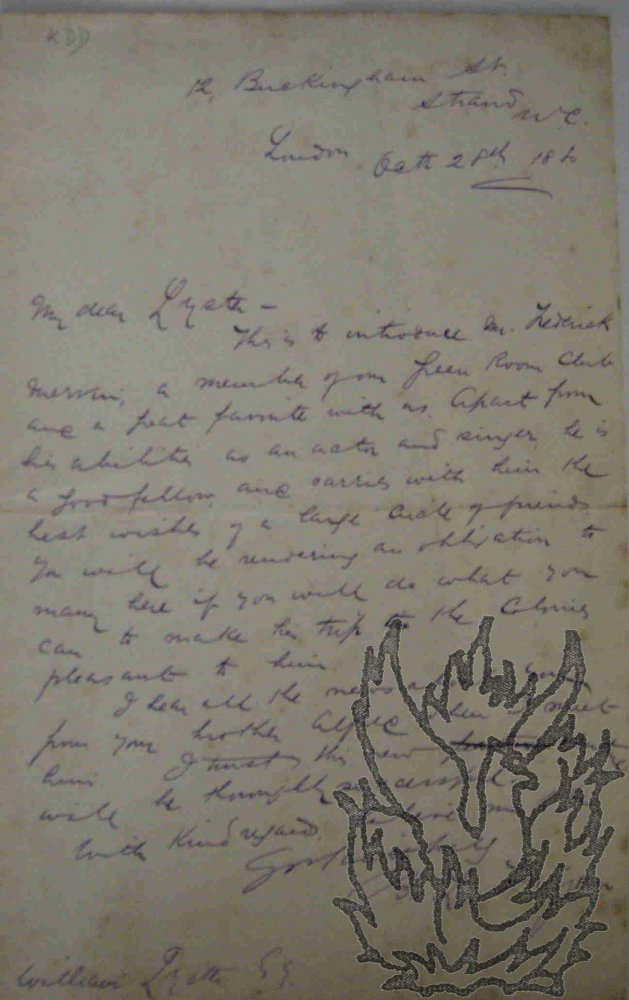 KDD
12, Buckingham St.
Strand W.C.
London Octr 28th 18
My dear Lyster –
This is to introduce Mr. Frederick
Mervin, a member of our Green Room Club
and a great favorite with us. Apart from
his abilities as an actor and singer, he is
a good fellow, and carries with him the
best wishes of a large circle of friends
You will be rendering an obligation to
many here if you will do what you
can to make his trip to the Colonies
pleasant to him
I hear all the news
meet
from your brother Alfred
him I trust the new
will be thoroughly successful
With kind regards
William Lyster Esq